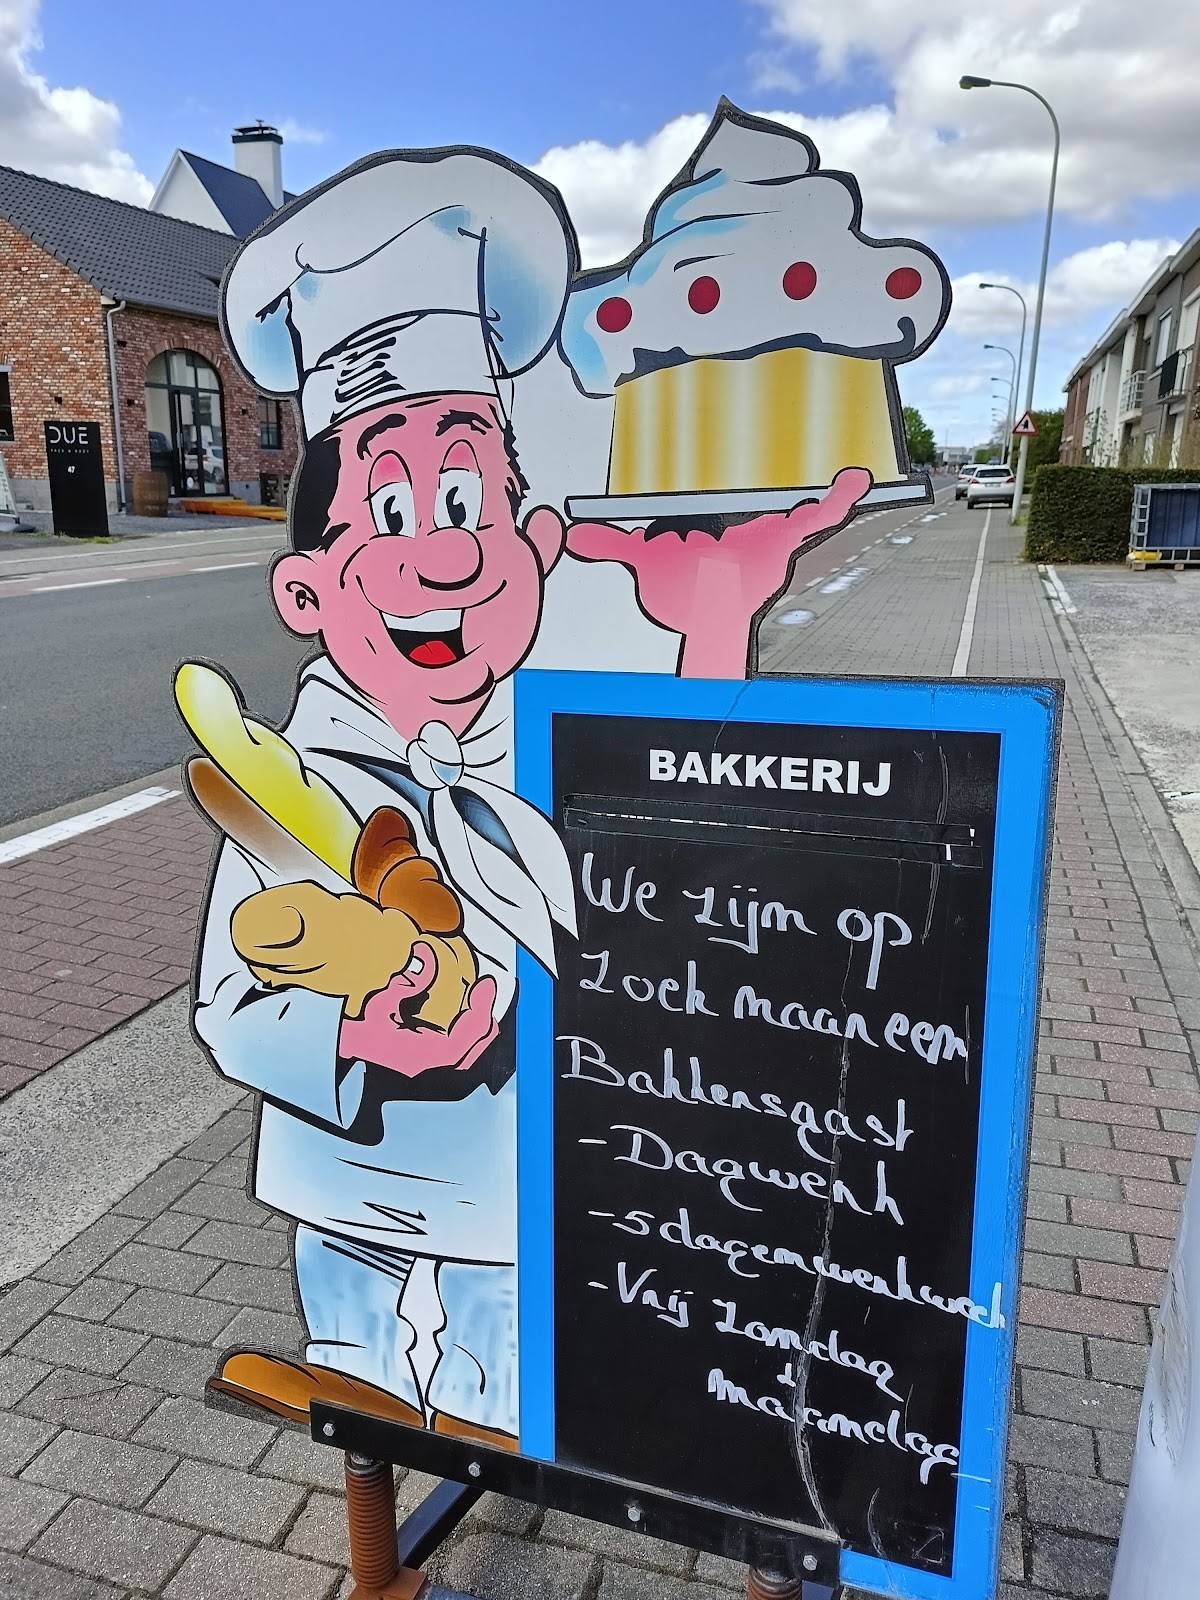 DUE
FACE & BODY
47
BAKKERIJ
We zijn op
zoek naar een
Bakkersgast
- Dagwerk
- 5 dagenwerkweek
- Vrij zondag
+
maandag